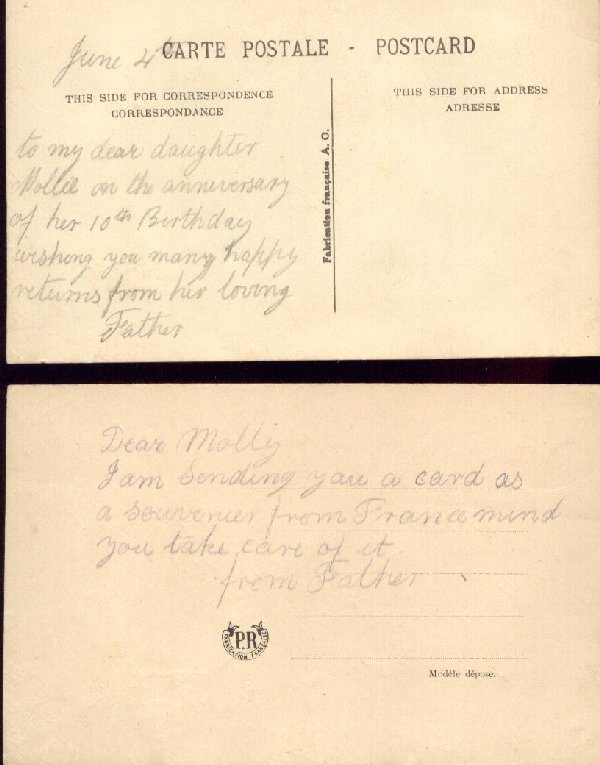 June 4th
CARTE POSTALE - POSTCARD
THIS SIDE FOR CORRESPONDENCE
CORRESPONDANCE
THIS SIDE FOR ADDRESS
ADRESSE
to my dear daughter
Mollie on the anniversary
of her 10th Birthday
wishing you many happy
returns from her loving
Father
Fabrication française A. O.
Dear Molly
I am Sending you a card as
a souvenier from France mind
you take care of it
from Father
P.R
Modèle déposé.